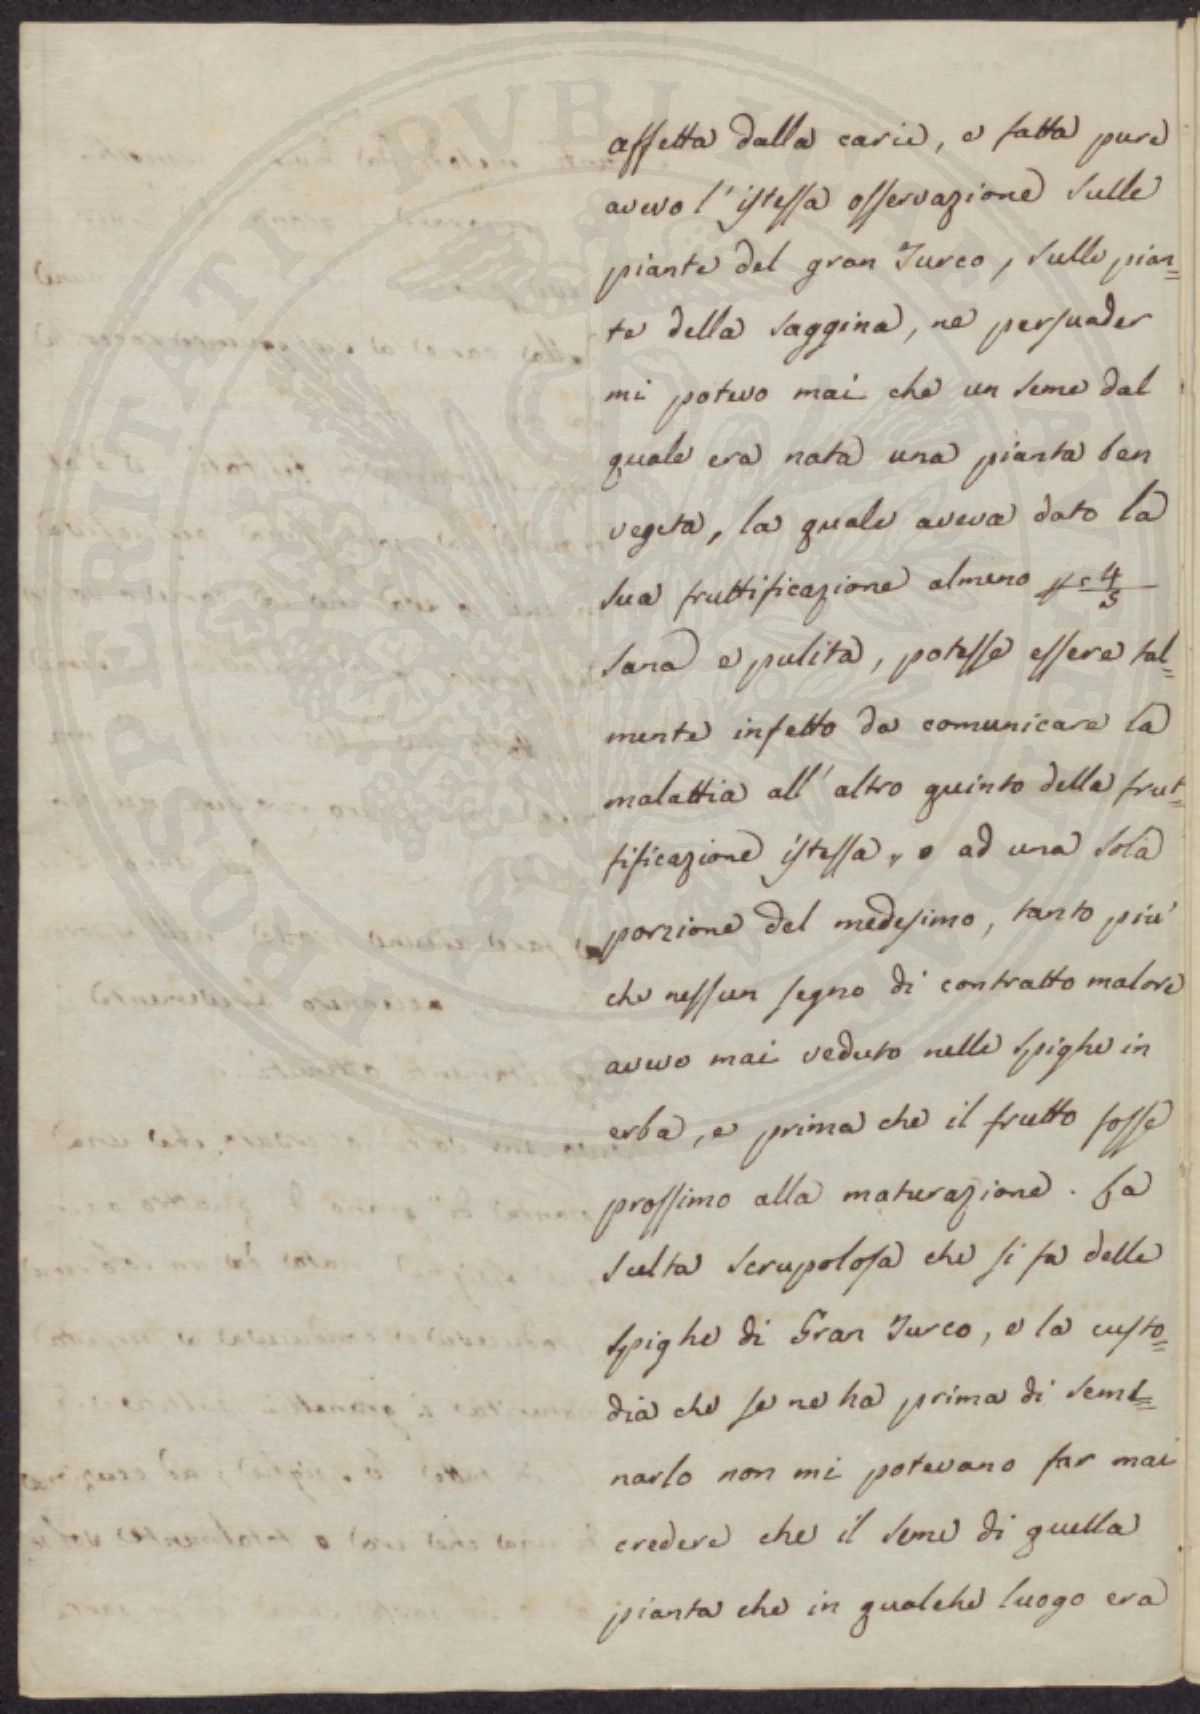 affetta dalla carie, e fatta pure
avevo l'istessa osservazione sulle
piante del gran Turco, sulle pian=
te della saggina, ne persuader
mi potevo mai che un seme dal
quale era nata una pianta ben
vegeta, la quale aveva dato la
sua fruttificazione almeno 4/5
sana e pulita, potesse essere tal=
mente infetto da comunicare la
malattia all'altro quinto della frut=
tificazione istessa, o ad una sola
porzione del medesimo, tanto più
che nessun segno di contratto malore
avevo mai veduto nelle spighe in
erba, e prima che il frutto fosse
prossimo alla maturazione. La
scelta scrupolosa che si fa delle
spighe di Gran Turco, e la custo=
dia che se ne ha prima di semi=
narlo non mi potevano far mai
credere che il seme di quella
pianta che in qualche luogo era
PROSPERITATI PVBLICAE